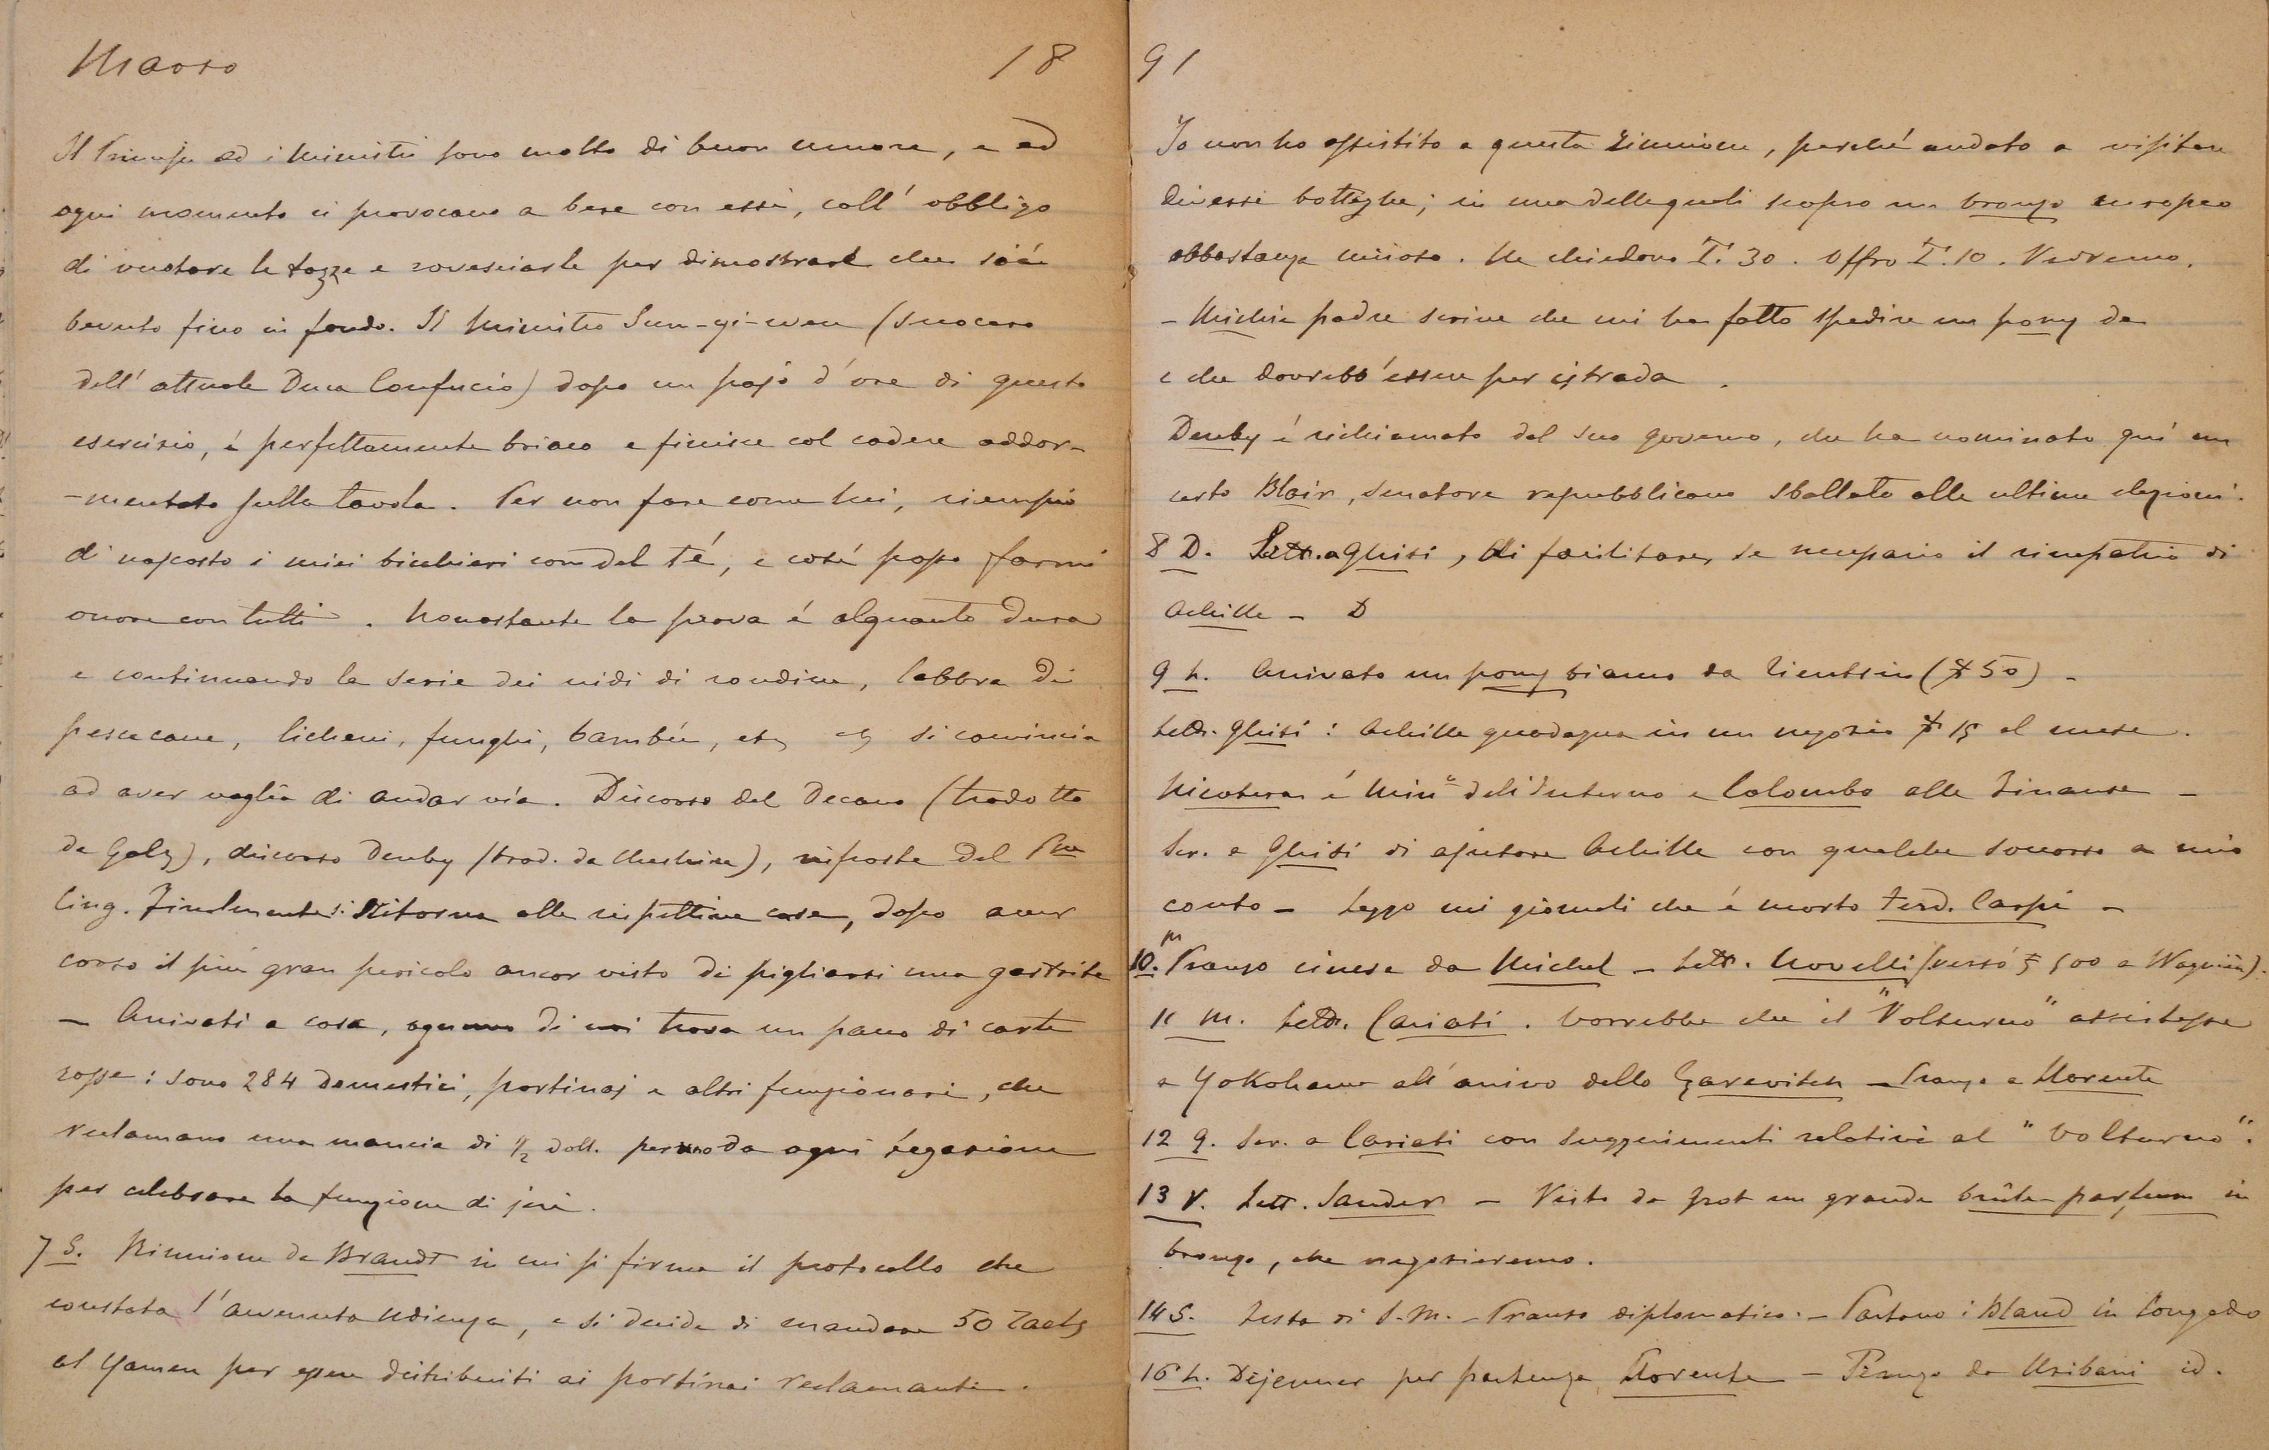 Marzo 18
Il Principe ed i Ministri sono molto di buon umore, e ad
ogni momento ci provocano a bere con essi, coll' obbligo
di vuotare le tazze e rovesciarle per dimostrare che si è
bevuto fino in fondo. Il Ministro Sun-yi-wen (suocero
dell' attuale Duca Confucio) dopo un pajo d'ore di questo
esercizio, é perfettamente briaco e finisce col cadere addor-
-mentato sulla tavola. Per non fare come lui, riempio
di nascosto i miei bicchieri con del té, e cosí posso farmi
onore con tutti. Nonostante la prova é alquanto dura
e continuando la serie dei nidi di rondine, labbra di
pescecane, licheni, funghi, bambú, etc etc si comincia
ad aver voglia di andar via. Discorso del Decano (tradotto
da Goltz), discorso Denby (trad. da Cheshire), risposta del Pce
Cing. Finalmente si ritorna alle rispettive case, dopo aver
corso il piú gran pericolo ancor visto di pigliarsi una gastrite
— Arrivati a casa, ognuno di noi trova un pacco di carte
rosse: sono 284 domestici, portinaj e altri funzionari, che
reclamano una mancia di 1/2 doll. per uno da ogni Legazione
per celebrare la funzione di jeri.
7 S. Riunione da Brandt in cui si firma il protocollo che
constata l'avvenuta udienza, e si decide di mandare 50 Taels
al Yamen per essere distribuiti ai portinai reclamanti.
91
Io non ho assistito a questa riunione, perché andato a visitare
diverse botteghe; in una delle quali scopro un bronzo europeo
abbastanza curioso. Ne chiedono T. 30. Offro T. 10. Vedremo.
— Michie padre scrive che mi ha fatto spedire un pony da
e che dovrebb'essere per istrada.
Denby é richiamato dal suo governo, che ha nominato quí un
certo Blair, senatore repubblicano sballato alle ultime elezioni.
8 D. Lett. a Ghisi, di facilitare, se necessario il rimpatrio di
Achille — D
9 L. Arrivato un pony bianco da Tientsin ($ 50) —
Lett. Ghisi: Achille guadagna in un negozio $ 15 al mese.
Nicotera é Min° dell'Interno e Colombo alle Finanze —
Scr. a Ghisi di ajutare Achille con qualche soccorso a mio
conto — Leggo nei giornali che é morto Ferd. Carpi —
10. M Pranzo cinese da Michel — Lett. Novelli (versó 500 a Wagnière).
11 M. Lett. Cariati. Vorrebbe che il "Volturno" assistesse
a Yokohama all'arrivo dello Czarevitch — Pranzo a Llorente
12 G. Scr. a Cariati con suggerimenti relativi al "Volturno".
13 V. Lett. Sander — Visto da Pot un grande brûle-parfum in
bronzo, che negozieremo.
14 S. Festa di S. M. — Pranzo diplomatico. — Partono i Bland in congedo
16 L. Déjeuner per partenza Llorente — Pranzo da Uribarri id.